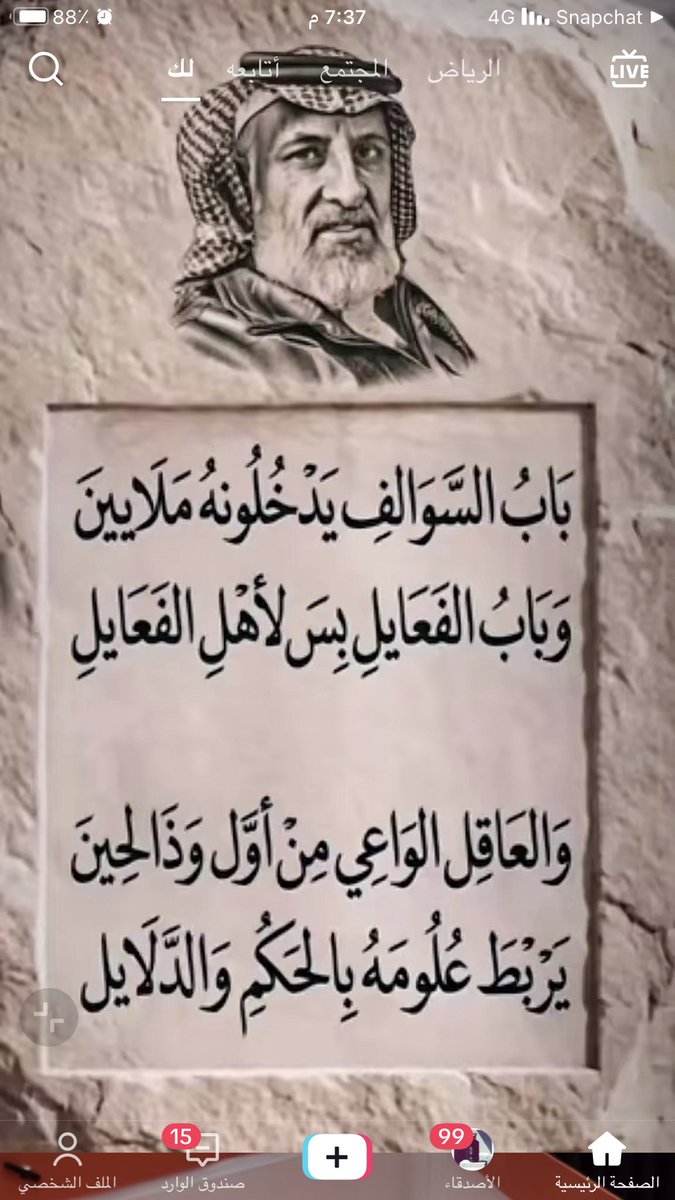 88٪ 7:37 م 4G Snapchat
لك أتابعه المجتمع الرياض LIVE
بَابُ السَّوَالفِ يَدْخُلُونهُ مَلَايينَ
وَبَابُ الفَعَايلِ بِسَ لأهْلِ الفَعَايلِ
وَالعَاقِل الوَاعِي مِنْ أوَّل وَذَالحِينَ
يَرْبْطَ عُلُومَهُ بِالحَكُمِ وَالدَّلَايل
99
15
الصفحة الرئيسية الأصدقاء صندوق الوارد الملف الشخصي